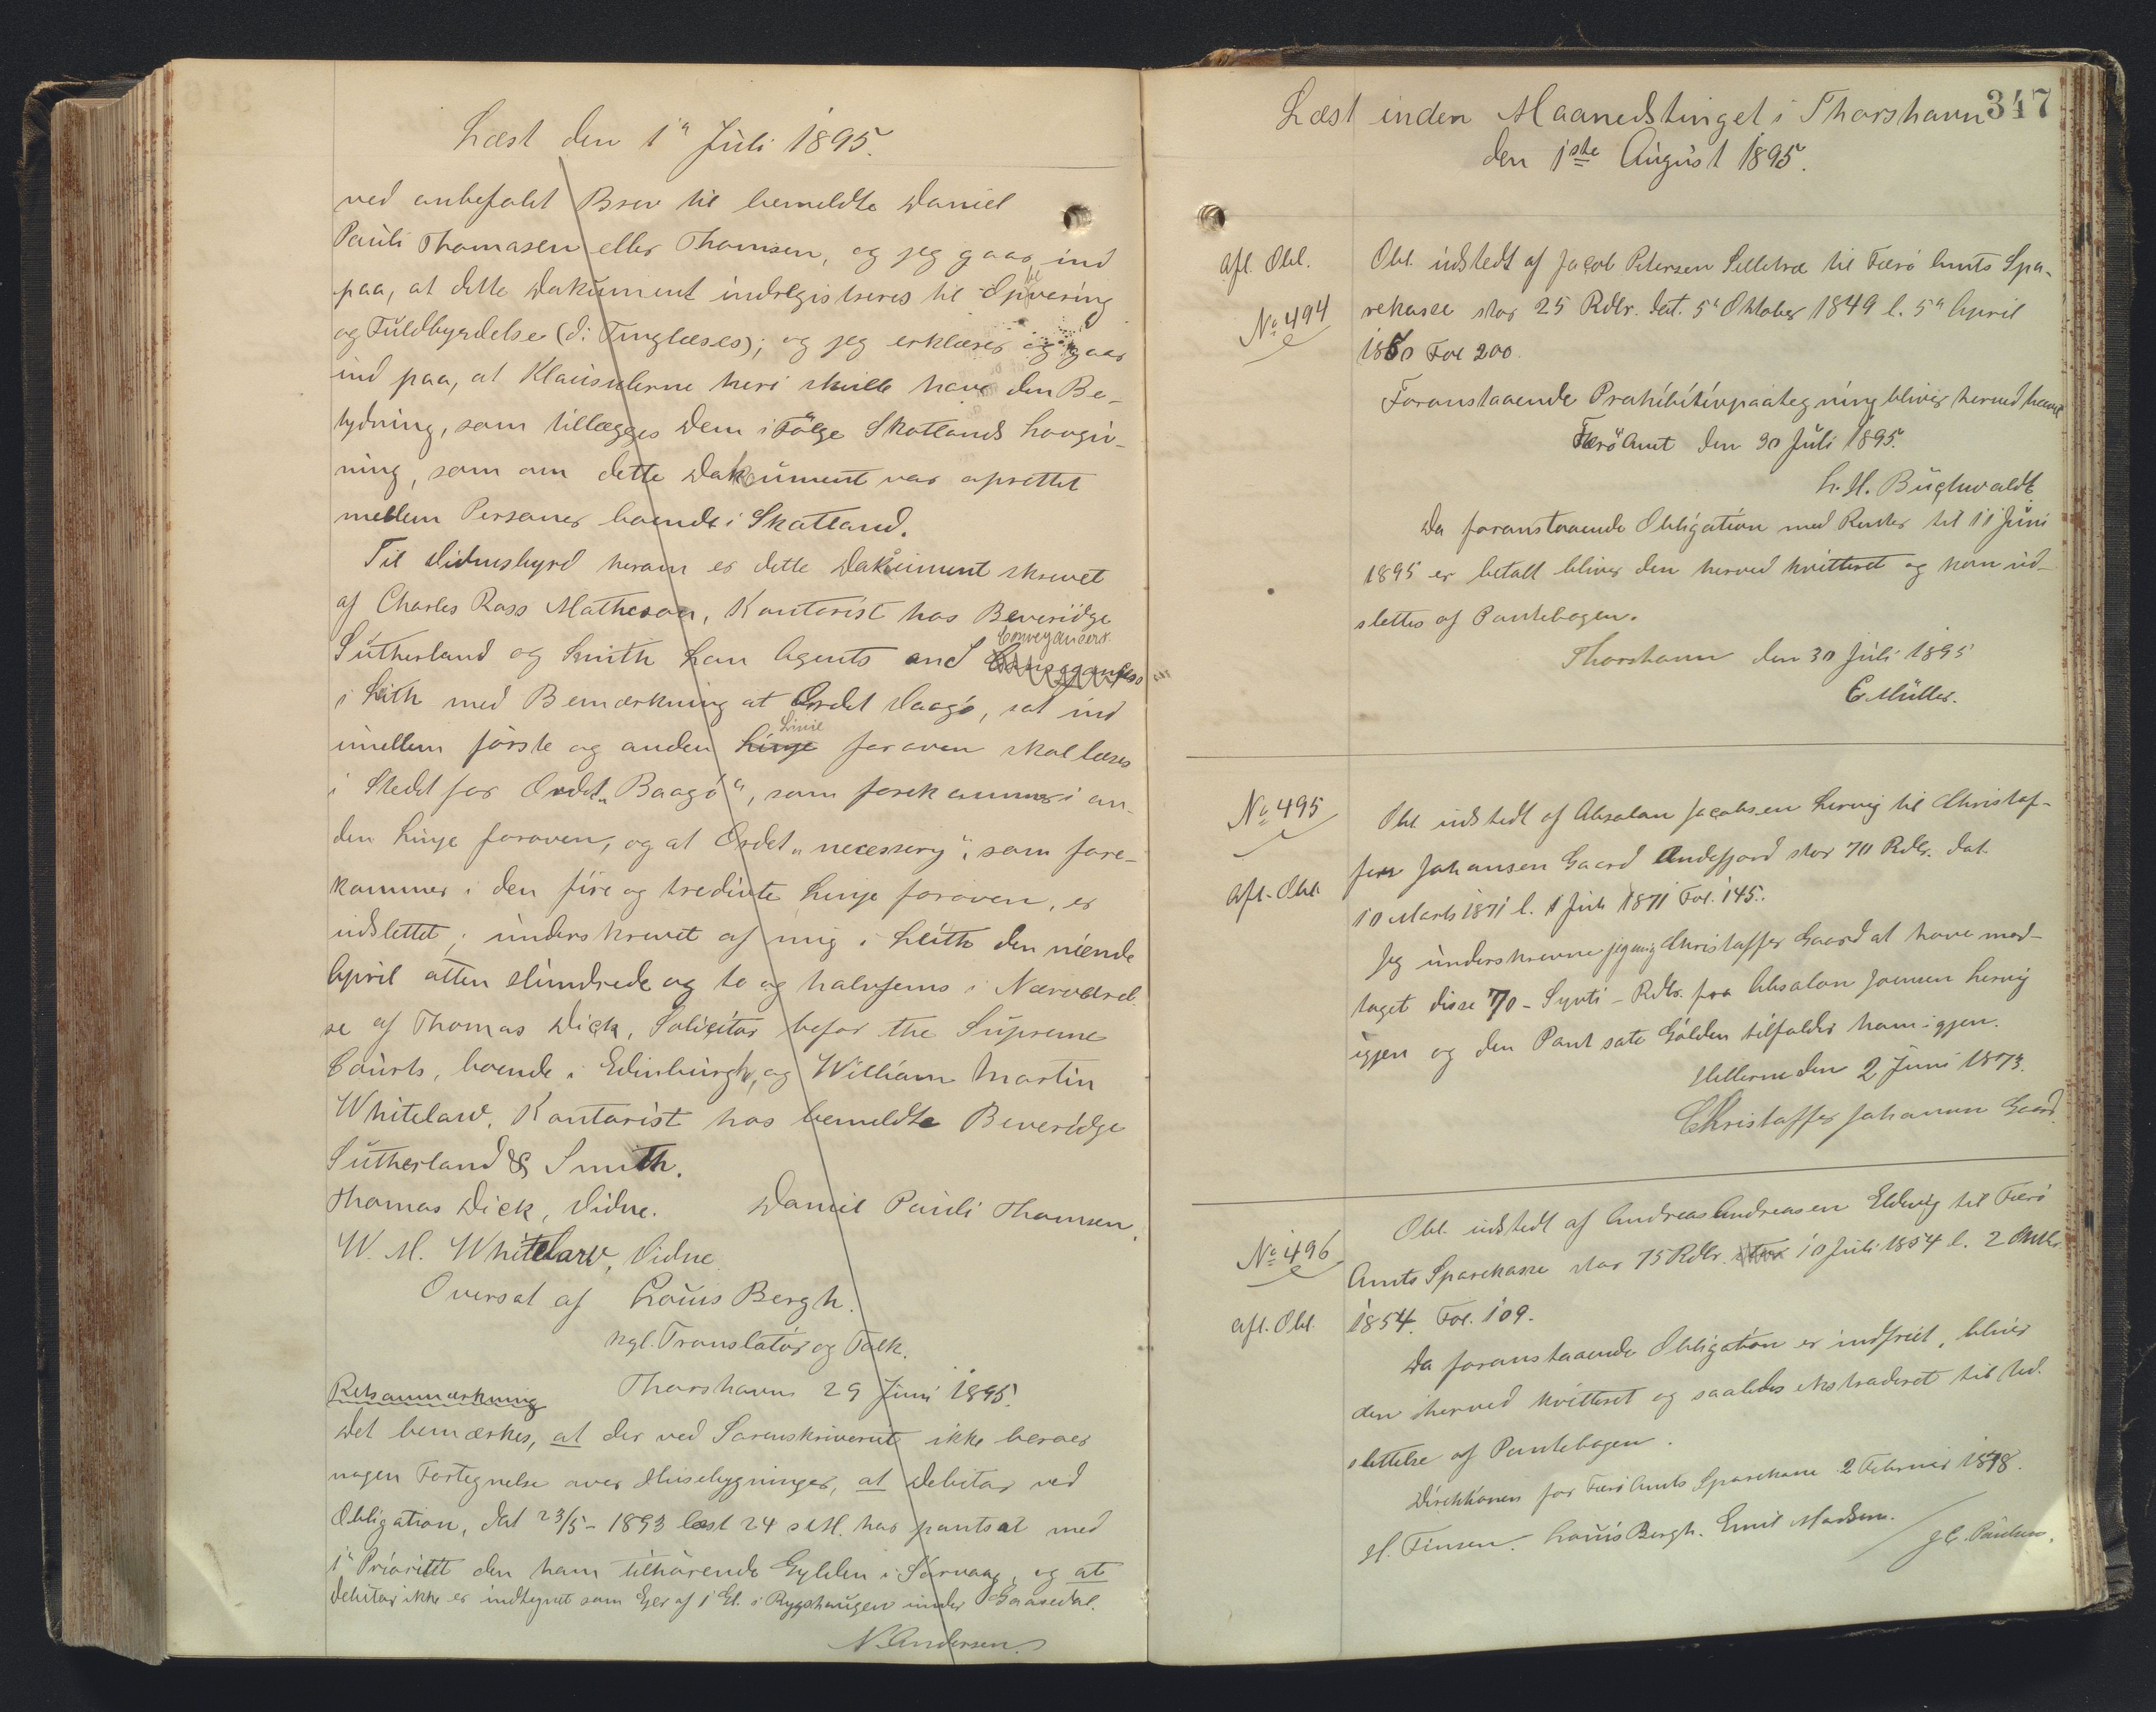 Læst den 1ª Juli 1895.
ved anbefalet Brev til bemeldte Daniel
Pauli Thomasen eller Thomsen, og jeg gaar ind
paa, at dette Dokument indregistreres til Opbevaring
og Fuldbyrdelse (ɔ: Tinglæses); og jeg erklærer og gaar
ind paa, at Klausulerne heri skulle have den Be-
tydning, som tillægges dem i Følge Skotlands Lovgiv-
ning, som om dette Dokument var oprettet
mellem Personer boende i Skotland.
Til Vidnesbyrd herom er dette Dokument skrevet
af Charles Ross Matheson, Kontorist hos Beveridge
Sutherland og Smith Law Agents and Conveyancers
i Leith med Bemærkning at Ordet Vaagö, sat ind
imellem förste og anden Linie foroven skal læses
i Stedet for Ordet „Baagö“, som forekommer i an-
den Linje foroven, og at Ordet „necessery“, som fore-
kommer i den fire og tredivte Linje foroven, er
udslettet; underskrevet af mig i Leith den niende
April atten Hundrede og to og halvfems i Nærværel-
se af Thomas Dick, Solicitor befor the Supreme
Courts, boende i Edinburgh, og William Martin
Whitelaw, Kontorist hos bemeldte Beveridge
Sutherland & Smith.
Thomas Dick, Vidne. Daniel Pauli Thomsen.
W. M. Whitelaw, Vidne.
Oversat af Louis Bergh.
kgl. Translatör og Tolk.
Retsanmærkning Thorshavn 29 Juni 1895.
Det bemærkes, at der ved Sorenskriveriet ikke beroer
nogen Fortegnelse over Husebygninger, at Debitor ved
Obligation, dat 23/5-1893 læst 24 s. M. har pantsat med
1ª Prioritet den ham tilhörende Gylden i Sörvaag, og at
Debitor ikke er indtegnet som Ejer af 1 Gl. i Rygshaugen under Gaasedal.
N. Andersen
347
Læst inden Maanedstinget i Thorshavn
den 1ste August 1895.
Afl. Obl.
No 494
Obl. udstedt af Jacob Petersen Selletræ til Færö Amts Spa-
rekasse stor 25 Rdlr. dat. 5ª Oktober 1849 l. 5ª April
1850 Fol 200.
Foranstaaende Prohibitivpaategning bliver herved hævet
Færö Amt den 30 Juli 1895.
L. H. Buchwaldt
Da foranstaaende Obligation med Renter til 11 Juni
1895 er betalt bliver den herved kvitteret og kan ud-
slettes af Pantebogen.
Thorshavn den 30 Juli 1895
E Müller.
No 495
Afl. Obl.
Obl. udstedt af Absalon Jacobsen Lervig til Christof-
fer Johansen Gaard Andefjord stor 70 Rdlr. dat.
10 Marts 1871 l. 1 Juli 1871 Fol. 145.
Jeg underskrevne jeg mig Christoffer Gaard at have mod-
taget disse 70 - Syvti - Rdlr. fra Absalon Joensen Lervig
igjen og den Pant sate Gölden tilfalder ham igjen.
Hellerne den 2 Juni 1873.
Christoffer Johansen Gaard.
No 496
Afl. Obl.
Obl. udstedt af Andreas Andreasen Eldevig til Færö
Amts Sparekasse stor 75 Rdlr. 10 Juli 1854 l. 2 Oktbr.
1854. Fol. 109.
Da foranstaaende Obligation er indfriet, bliver
den herved kvitteret og saaledes ekstraderet til Ud-
slettelse af Pantebogen.
Direktionen for Færö Amts Sparekasse 2 Februar 1898.
H. Finsen. Louis Bergh. Emil Madsen.